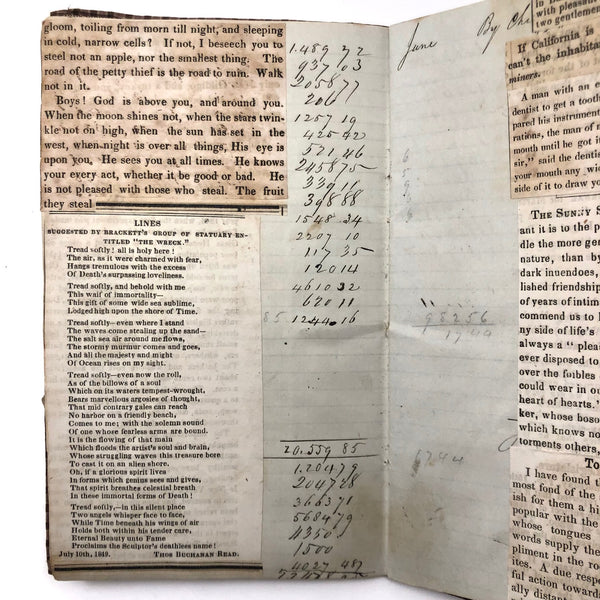 gloom, toiling from morn till night, and sleeping
in cold, narrow cells? If not, I beseech you to
steel not an apple, nor the smallest thing. The
road of the petty thief is the road to ruin. Walk
not in it.
Boys! God is above you, and around you.
When the moon shines not, when the stars twin-
kle not on high, when the sun has set in the
west, when night is over all things, His eye is
upon you. He sees you at all times. He knows
your every act, whether it be good or bad. He
is not pleased with those who steal. The fruit
they steal
LINES
SUGGESTED BY BRACKETT'S GROUP OF STATUARY EN-
TITLED "THE WRECK."
Tread softly! all is holy here!
The air, as it were charmed with fear,
Hangs tremulous with the excess
Of Death's surpassing loveliness.
Tread softly, and behold with me
This waif of immortality—
This gift of some wide sea sublime,
Lodged high upon the shore of Time.
Tread softly—even where I stand
The waves come stealing up the sand—
The salt sea air around me flows,
The stormy murmur comes and goes,
And all the majesty and might
Of Ocean rises on my sight.
Tread softly—even now the roll,
As of the billows of a soul
Which on its waters tempest-wrought,
Bears marvellous argosies of thought,
That mid contrary gales can reach
No harbor on a friendly beach,
Comes to me; with the solemn sound
Of one whose fearless arms are bound.
It is the flowing of that main
Which floods the artist's soul and brain,
Whose struggling waves this treasure bore
To cast it on an alien shore.
Oh, if a glorious spirit lives
In forms which genius sees and gives,
That spirit breathes celestial breath
In these immortal forms of Death!
Tread softly,—in this silent place
Two angels whisper face to face,
While Time beneath his wings of air
Holds both within his tender care,
Eternal Beauty unto Fame
Proclaims the Sculptor's deathless name!
July 10th, 1849. THOS BUCHANAN READ.
1.489 22
937 03
2058 77
206
1257 19
425 42
521 46
2458 75
339 10
398 88
1548 34
2207 10
117 35
120 14
4610 32
620 11
85 1244.16
20.559 85
1.204 79
2047 28
3663 71
5684 79
1500
4027 48
June By
98256
1744
6244
with pleasant
two gentlemen
If California is
can't the inhabitan
miners.
A man with an e
dentist to get a tooth
pared his instrument
rations, the man of m
mouth until he got it
sir," said the dentist
your mouth any wid
side of it to draw yo
THE SUNNY S
ant it is to the p
dle the more gen
nature, than by
dark inuendoes,
lished friendship
of years of intim
commend us to l
ny side of life's
always a " pleas
ever disposed to
over the foibles
could wear in ou
heart of hearts."
ker, whose boso
which knows no
torments others,
To
I have found th
most fond of the
ish for them a hi
popular with the
whose tongues
words supply the
pliment in the roo
ites. A due respec
ful action towards
ally distant